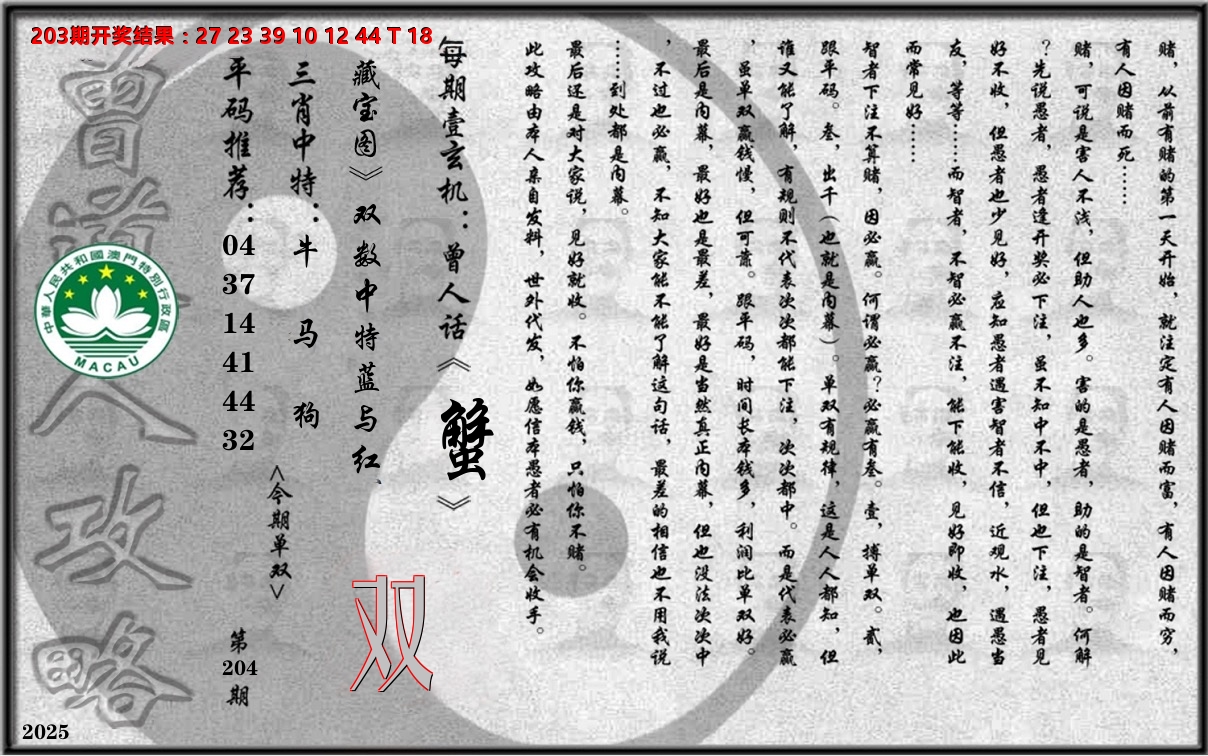 203期开奖结果：27 23 39 10 12 44 T 18
赌，从前有赌的第一天开始，就注定有人因赌而富，有人因赌而穷，
有人因赌而死……
赌，可说是害人不浅，但助人也多。害的是愚者，助的是智者。何解
？先说愚者，愚者逢开奖必下注，虽不知中不中，但也下注，愚者见
好不收，但愚者也少见好，应知愚者遇害智者不信，近观水，遇愚当
友，等等……而智者，不智必赢不注，能下能收，见好即收，也因此
而常见好……
智者下注不算赌，因必赢。何谓必赢？必赢有叁。壹，搏单双。贰，
跟平码。叁，出千（也就是内幕）。单双有规律，这是人人都知，但
谁又能了解，有规则不代表次次都能下注，次次都中。而是代表必赢
，虽单双赢钱慢，但可靠。跟平码，时间长本钱多，利润比单双好。
最后是内幕，最好也是最差，最好是当然真正内幕，但也没法次次中
，不过也必赢，不知大家能不能了解这句话，最差的相信也不用我说
……到处都是内幕。
最后还是对大家说，见好就收。不怕你赢钱，只怕你不赌。
此攻略由本人亲自发料，世外代发，如愿信本愚者必有机会收手。
每期壹玄机：曾人话《蟹》
藏宝图》双数中特蓝与红
双
三肖中特：牛 马 狗
<今期单双>
平码推荐：04 37 14 41 44 32
第204期
曾道人攻略
中華人民共和國澳門特別行政區
MACAU
2025